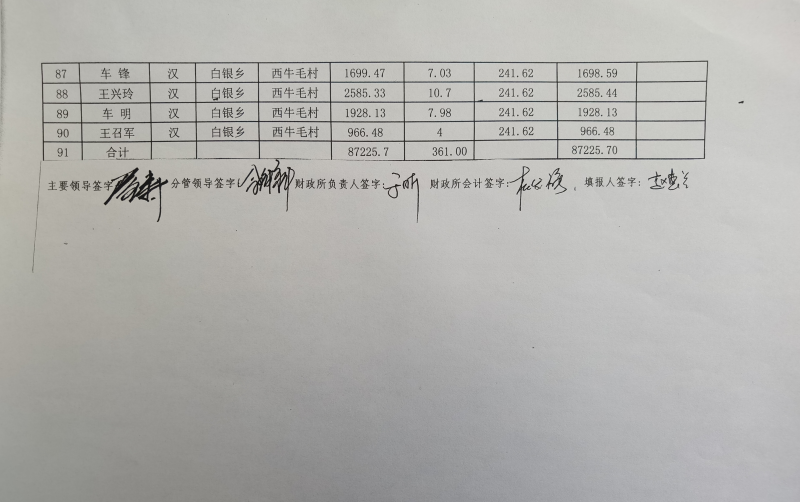 87 车 锋 汉 白银乡 西牛毛村 1699.47 7.03 241.62 1698.59
88 王兴玲 汉 白银乡 西牛毛村 2585.33 10.7 241.62 2585.44
89 车 明 汉 白银乡 西牛毛村 1928.13 7.98 241.62 1928.13
90 王召军 汉 白银乡 西牛毛村 966.48 4 241.62 966.48
91 合计 87225.7 361.00 87225.70
主要领导签字 分管领导签字: 财政所负责人签字: 财政所会计签字: 填报人签字: